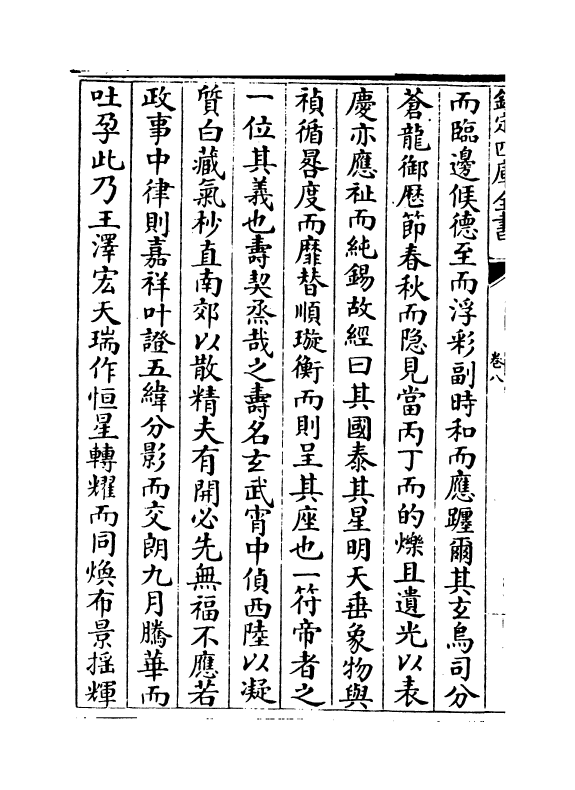 欽定四庫全書
卷八
而臨邊候德至而浮彩副時和而應躔爾其玄鳥司分
蒼龍御厯節春秋而隱見當丙丁而的爍且遺光以表
慶亦應祉而純錫故經曰其國泰其星明天垂象物與
禎循晷度而靡替順璇衡而則呈其座也一符帝者之
一位其義也壽契烝哉之壽名玄武宵中偵西陸以凝
質白藏氣杪直南郊以散精夫有開必先無福不應若
政事中律則嘉祥叶證五緯分影而交朗九月騰華而
吐孕此乃王澤宏天瑞作恒星轉耀而同煥布景揺輝